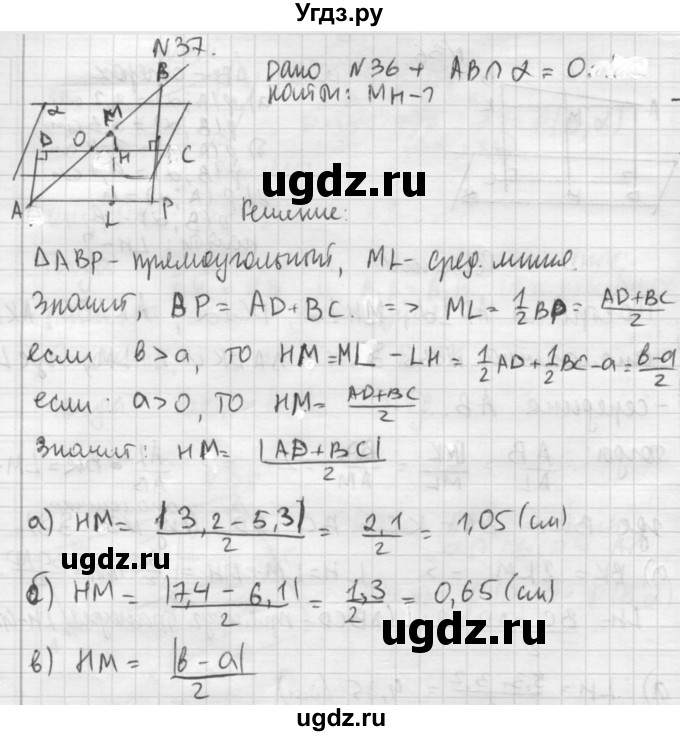 Угдз.ру
N37.
Дано N36 + AB∩α = O.
Найти: MH-?
B
α
M
D O H C
A L P
Решение:
ugdz.ru
ΔABP - прямоугольный, ML - сред. линия.
Значит, BP = AD+BC. => ML = 1/2 BP = (AD+BC)/2
если b>a, то HM = ML - LH = 1/2 AD + 1/2 BC - a = (b-a)/2
если: a>0, то HM = (AD+BC)/2
Значит: HM = |AD+BC|/2
а) HM = |3,2-5,3|/2 = 2,1/2 = 1,05 (см)
ugdz.ru
б) HM = |7,4-6,1|/2 = 1,3/2 = 0,65 (см)
ugdz.ru
в) HM = |b-a|/2
ugdz.ru